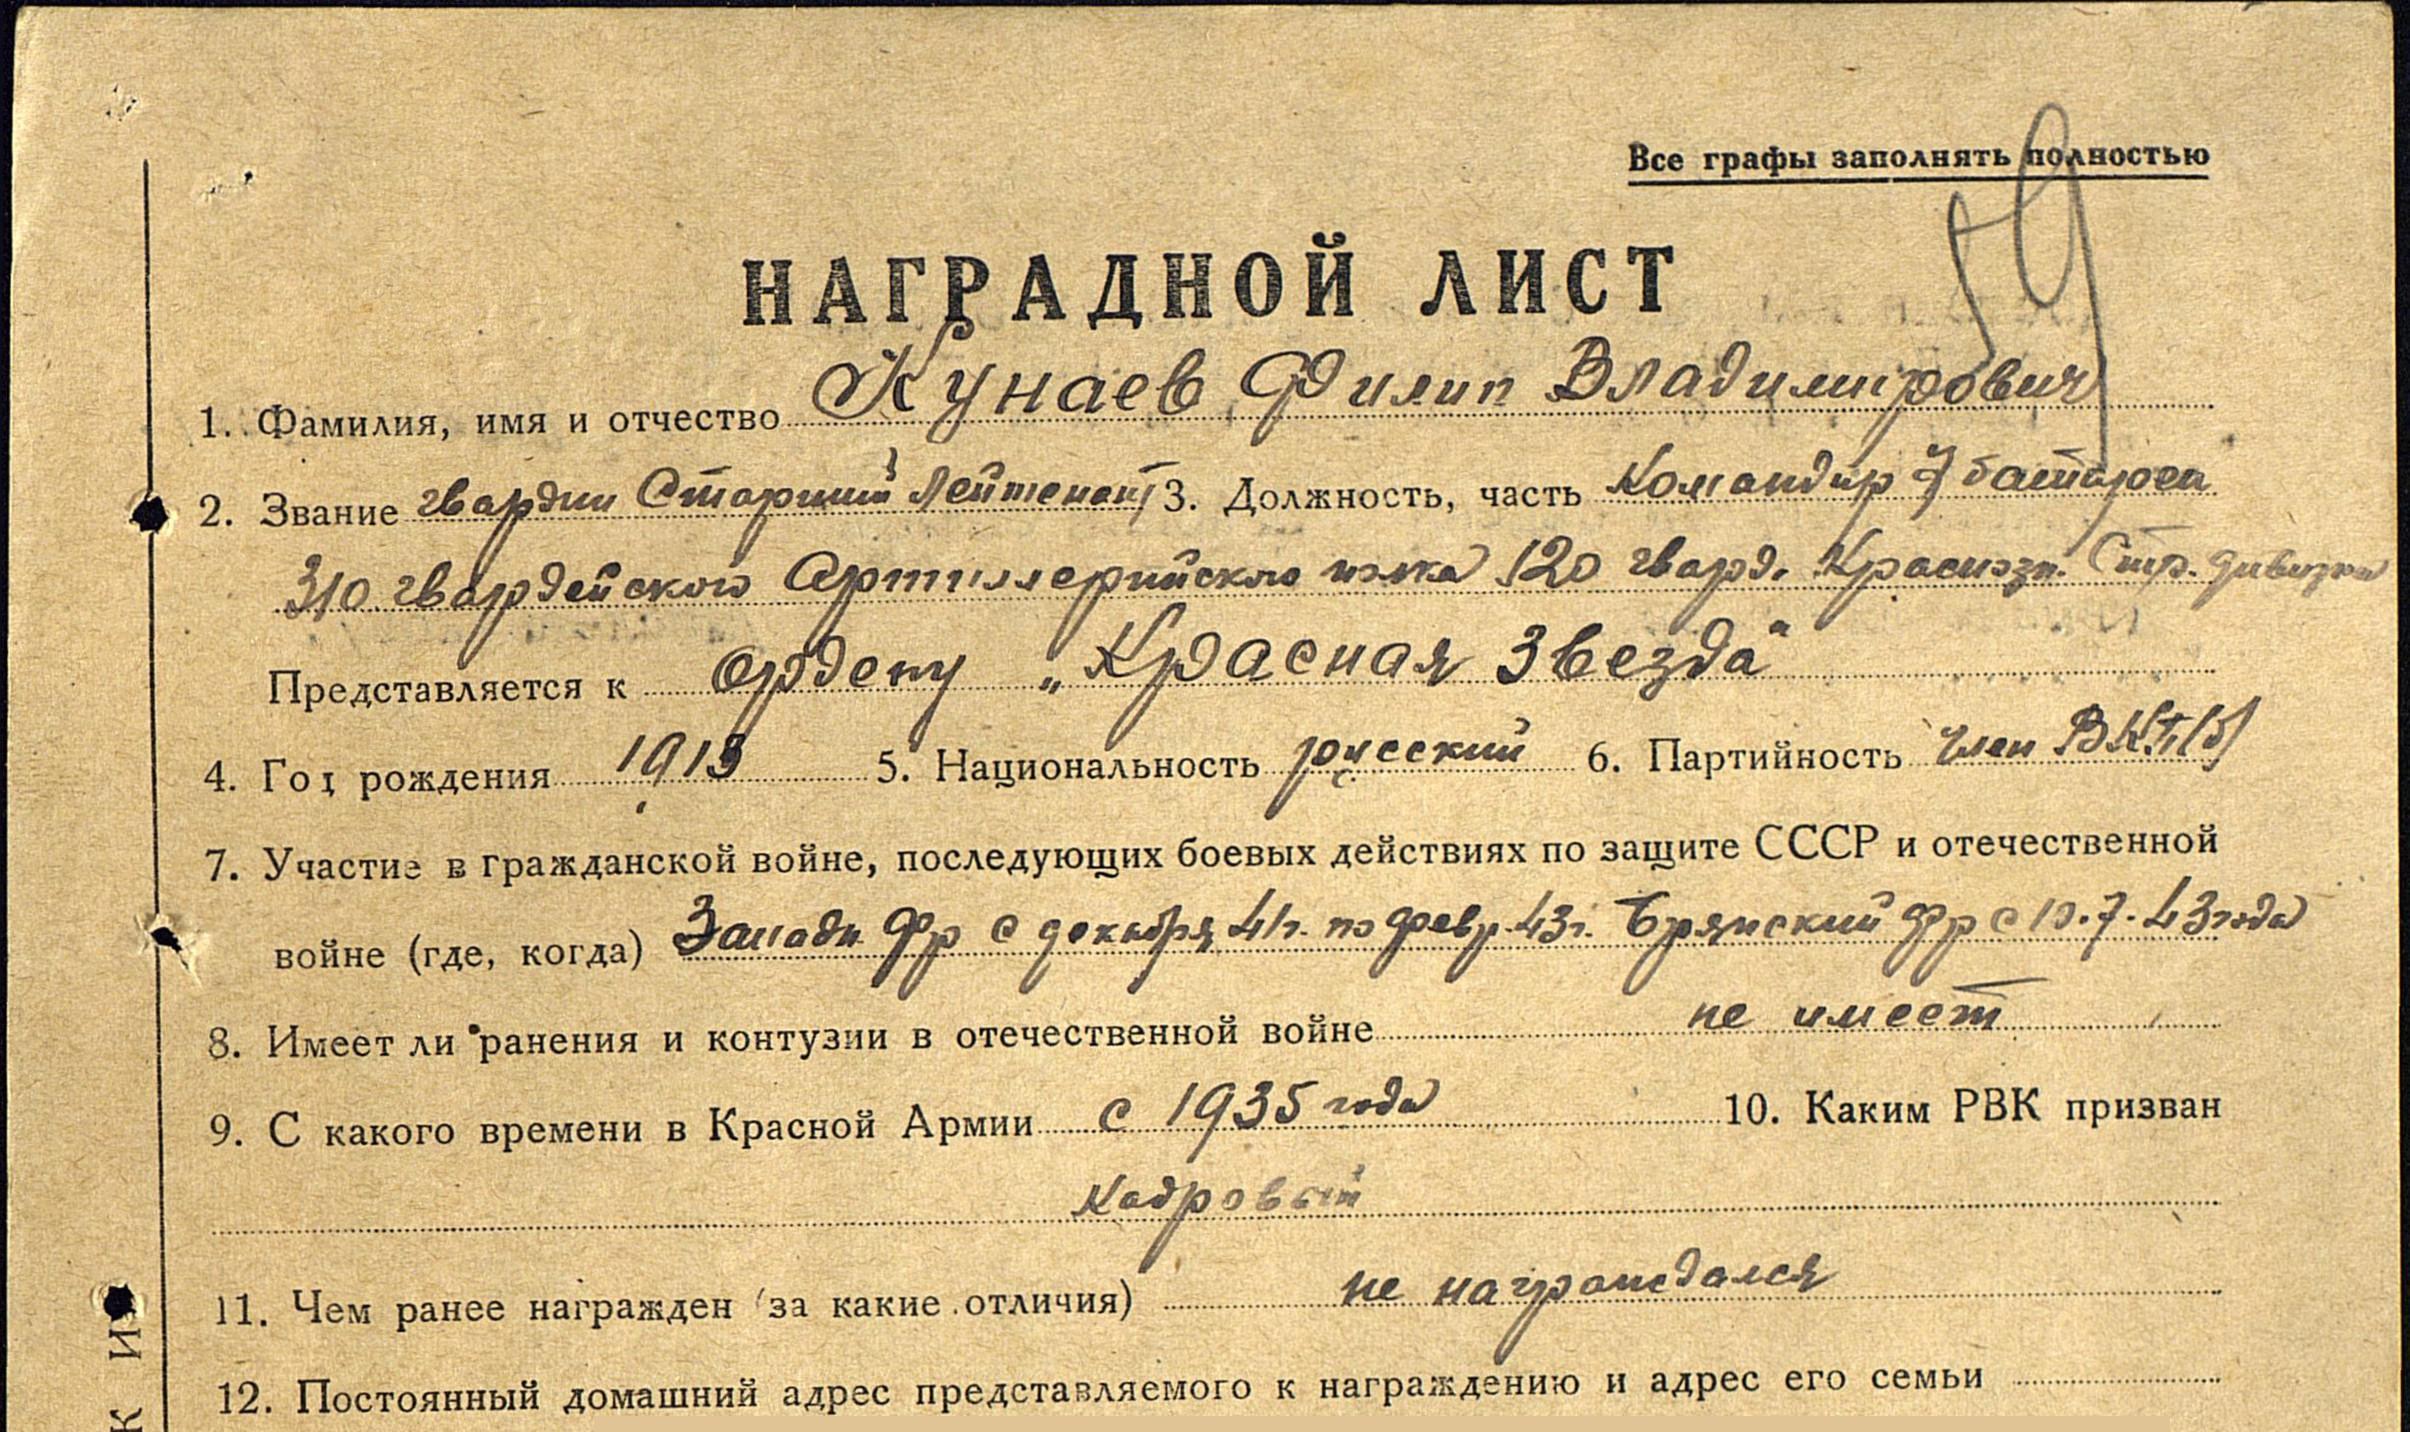 Все графы заполнять полностью
59
НАГРАДНОЙ ЛИСТ
1. Фамилия, имя и отчество Кунаев Филип Владимирович
2. Звание гвардии Старший Лейтенант 3. Должность, часть Командир 7 батареи
310 гвардейского Артиллерийского полка 120 гвард. Краснозн. Стр. дивизии
Представляется к ордену „Красная Звезда"
4. Год рождения 1913 5. Национальность русский 6. Партийность член ВКП(б)
7. Участие в гражданской войне, последующих боевых действиях по защите СССР и отечественной
войне (где, когда) Западн. фр с декабря 41г. по февр. 43г. Брянский фр с 10.7.43 года
8. Имеет ли ранения и контузии в отечественной войне не имеет
9. С какого времени в Красной Армии с 1935 года 10. Каким РВК призван
Кадровый
11. Чем ранее награжден (за какие отличия) не награждался
12. Постоянный домашний адрес представляемого к награждению и адрес его семьи